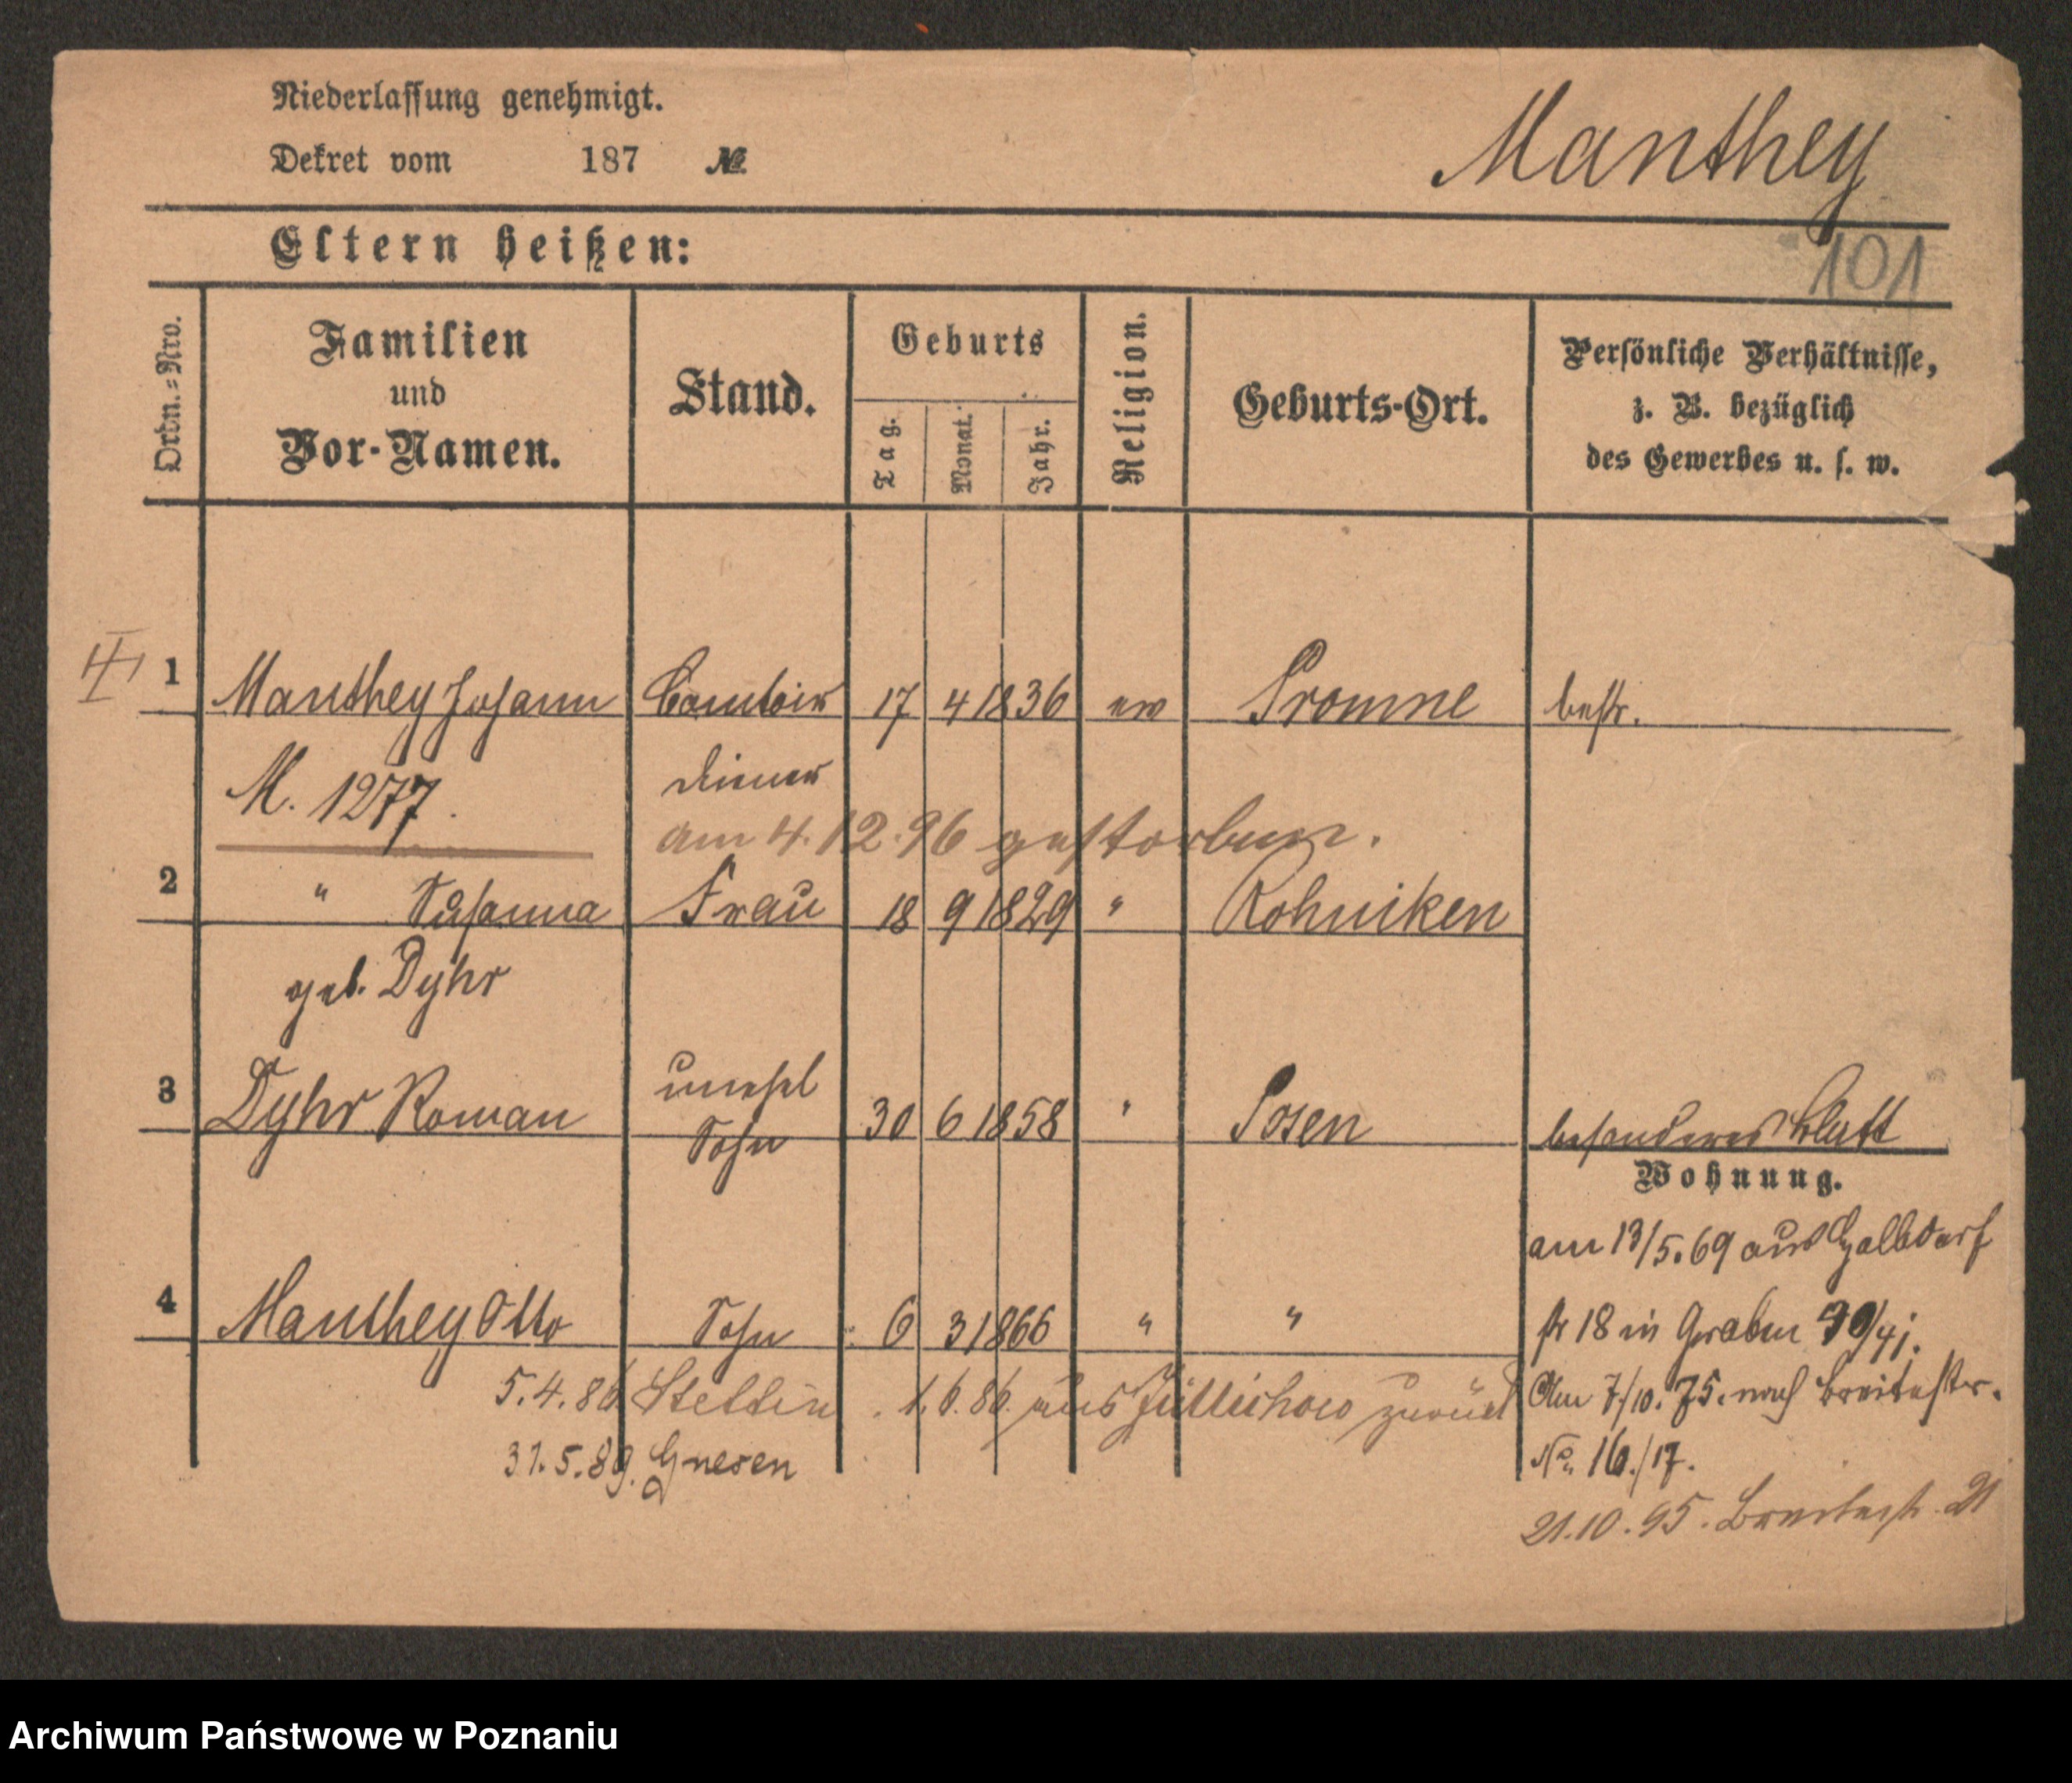 Niederlassung genehmigt.
Dekret vom 187 №
Manthey
101
Eltern heißen:
Ordn.=Nro.
Familien
und
Vor-Namen.
Stand.
Geburts
Tag.
Monat.
Jahr.
Religion.
Geburts-Ort.
Persönliche Verhältnisse,
z. B. bezüglich
des Gewerbes u. s. w.
1 Manthey Johann Comtoir 17 4 1836 ev Promne bestr.
M. 1277. diener
am 4.12.96 gestorben.
2 " Susanna Frau 18 9 1829 " Rohniken
geb. Dyhr
3 Dyhr Roman unehl Sohn 30 6 1858 " Posen besonderes Blatt
Wohnung.
am 13/5.69 aus
4 Manthey Otto Sohn 6 3 1866 " "
str 18 in Graben
5.4.86 Stettin. 1.6.86. aus Züllichow zurück
Am 7./10.75. nach Breitestr.
No 16./17.
31.5.89. Gnesen
21.10.95. Breitestr. 21
Archiwum Państwowe w Poznaniu